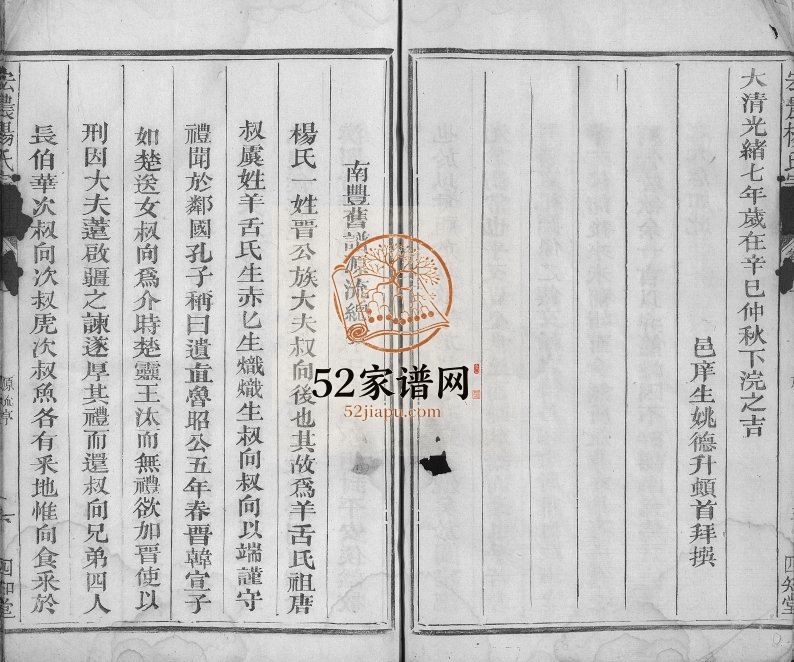 大清光緒七年歲在辛巳仲秋下浣之吉
邑庠生姚德升頓首拜撰
四知堂
南豐舊譜源流
楊氏一姓晋公族大夫叔向後也其故爲羊舌氏祖唐
叔虞姓羊舌氏生赤匕生熾熾生叔向叔向以端謹守
禮聞於鄰國孔子稱曰遺直魯昭公五年春晋韓宣子
如楚送女叔向爲介時楚靈王汰而無禮欲加晋使以
刑因大夫薳啟疆之諫遂厚其禮而還叔向兄弟四人
長伯華次叔向次叔虎次叔魚各有釆地惟向食釆於
宏農楊氏
源流序
六
四知堂
52家谱网
52jiapu.com